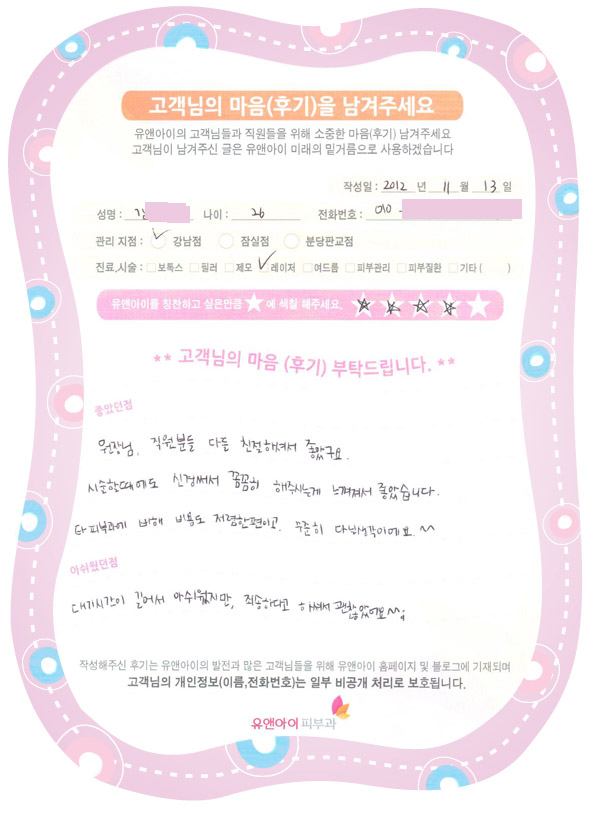 고객님의 마음(후기)을 남겨주세요
유앤아이의 고객님들과 직원들을 위해 소중한 마음(후기) 남겨주세요
고객님이 남겨주신 글은 유앤아이 미래의 밑거름으로 사용하겠습니다
작성일 : 2012 년 11 월 13 일
성명 : 김 나이 : 26 전화번호 : 010 -
관리 지점 : 강남점 잠실점 분당판교점
진료,시술 : 보톡스 필러 제모 레이저 여드름 피부관리 피부질환 기타 ( )
유앤아이를 칭찬하고 싶은만큼 ★에 색칠 해주세요.
** 고객님의 마음 (후기) 부탁드립니다. **
좋았던점
원장님, 직원분들 다들 친절하셔서 좋았구요.
시술할때에도 신경써서 꼼꼼히 해주시는게 느껴져서 좋았습니다.
타피부과에 비해 비용도 저렴한편이고, 꾸준히 다닐생각이에요. ^^
아쉬웠던점
대기시간이 길어서 아쉬웠지만, 죄송하다고 하셔서 괜찮았어요^^;
작성해주신 후기는 유앤아이의 발전과 많은 고객님들을 위해 유앤아이 홈페이지 및 블로그에 기재되며
고객님의 개인정보(이름,전화번호)는 일부 비공개 처리로 보호됩니다.
유앤아이 피부과